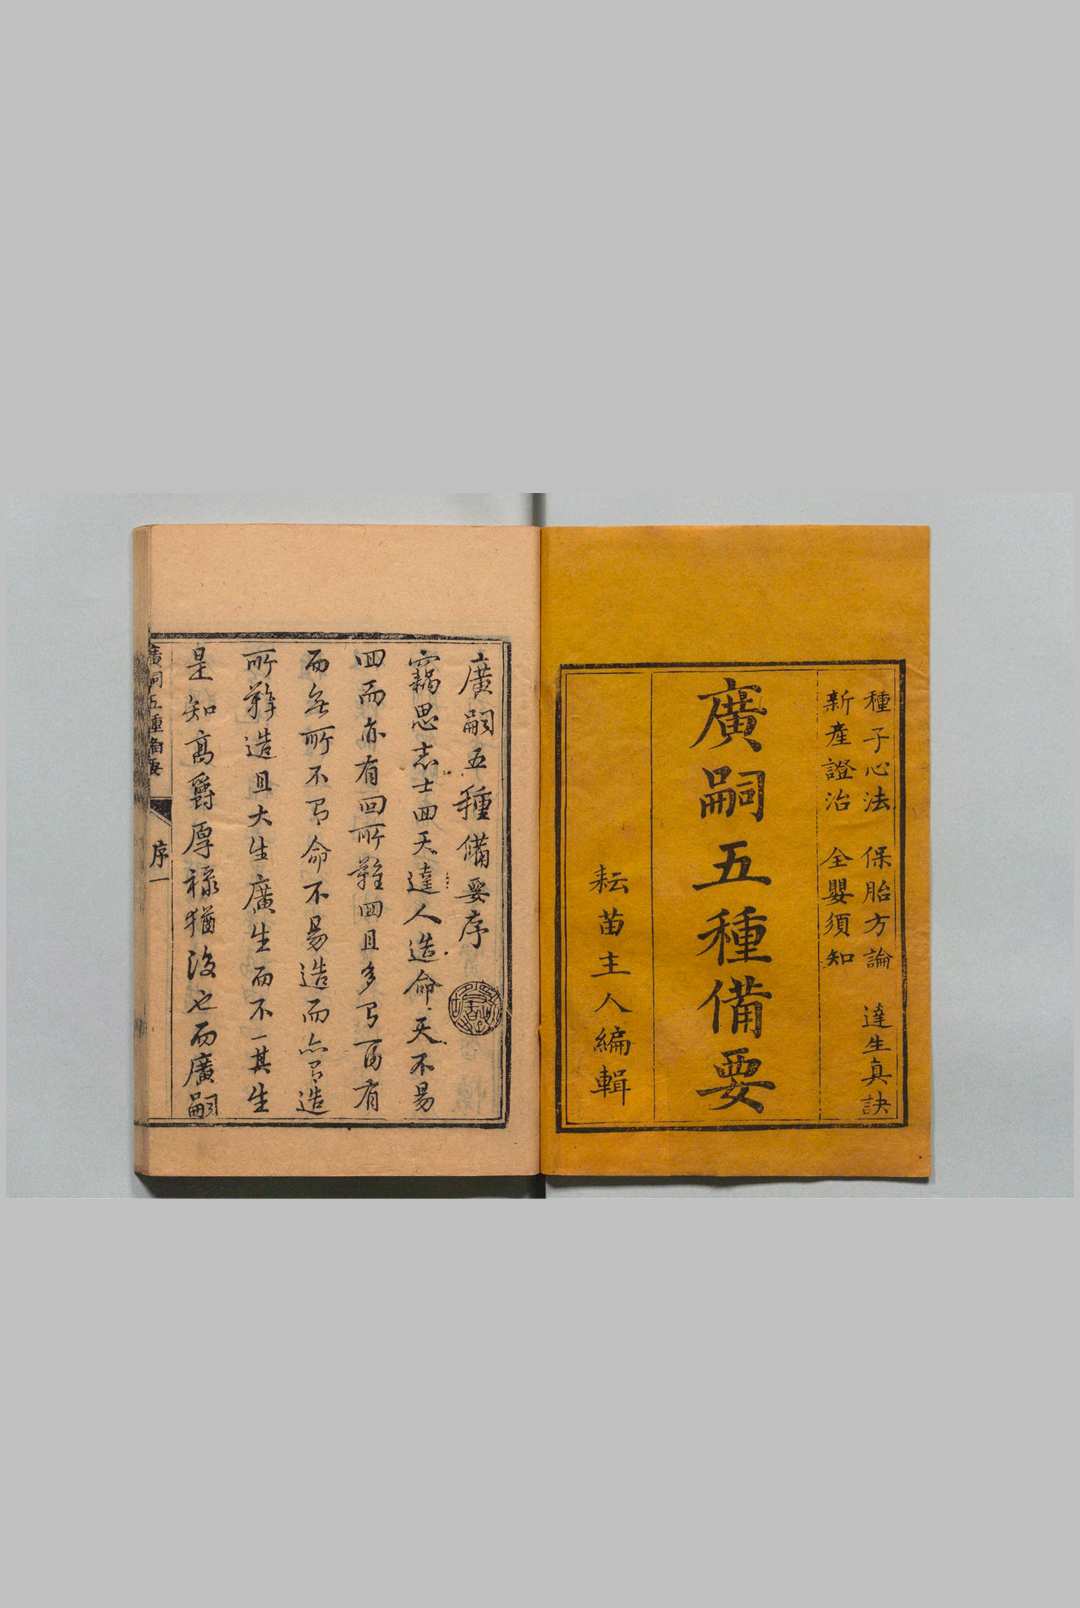 種子心法 保胎方論 達生真訣
新產證治 全嬰須知
廣嗣五種備要
耘苗主人編輯
廣嗣五種備要序
竊思志士回天達人造命天不易
回而亦有回所難回且多可有
而無所不可命不易造而亦可造
所難造且大生廣生而不一其生
是知高爵厚祿猶後也而廣嗣
廣嗣五種備要
序一